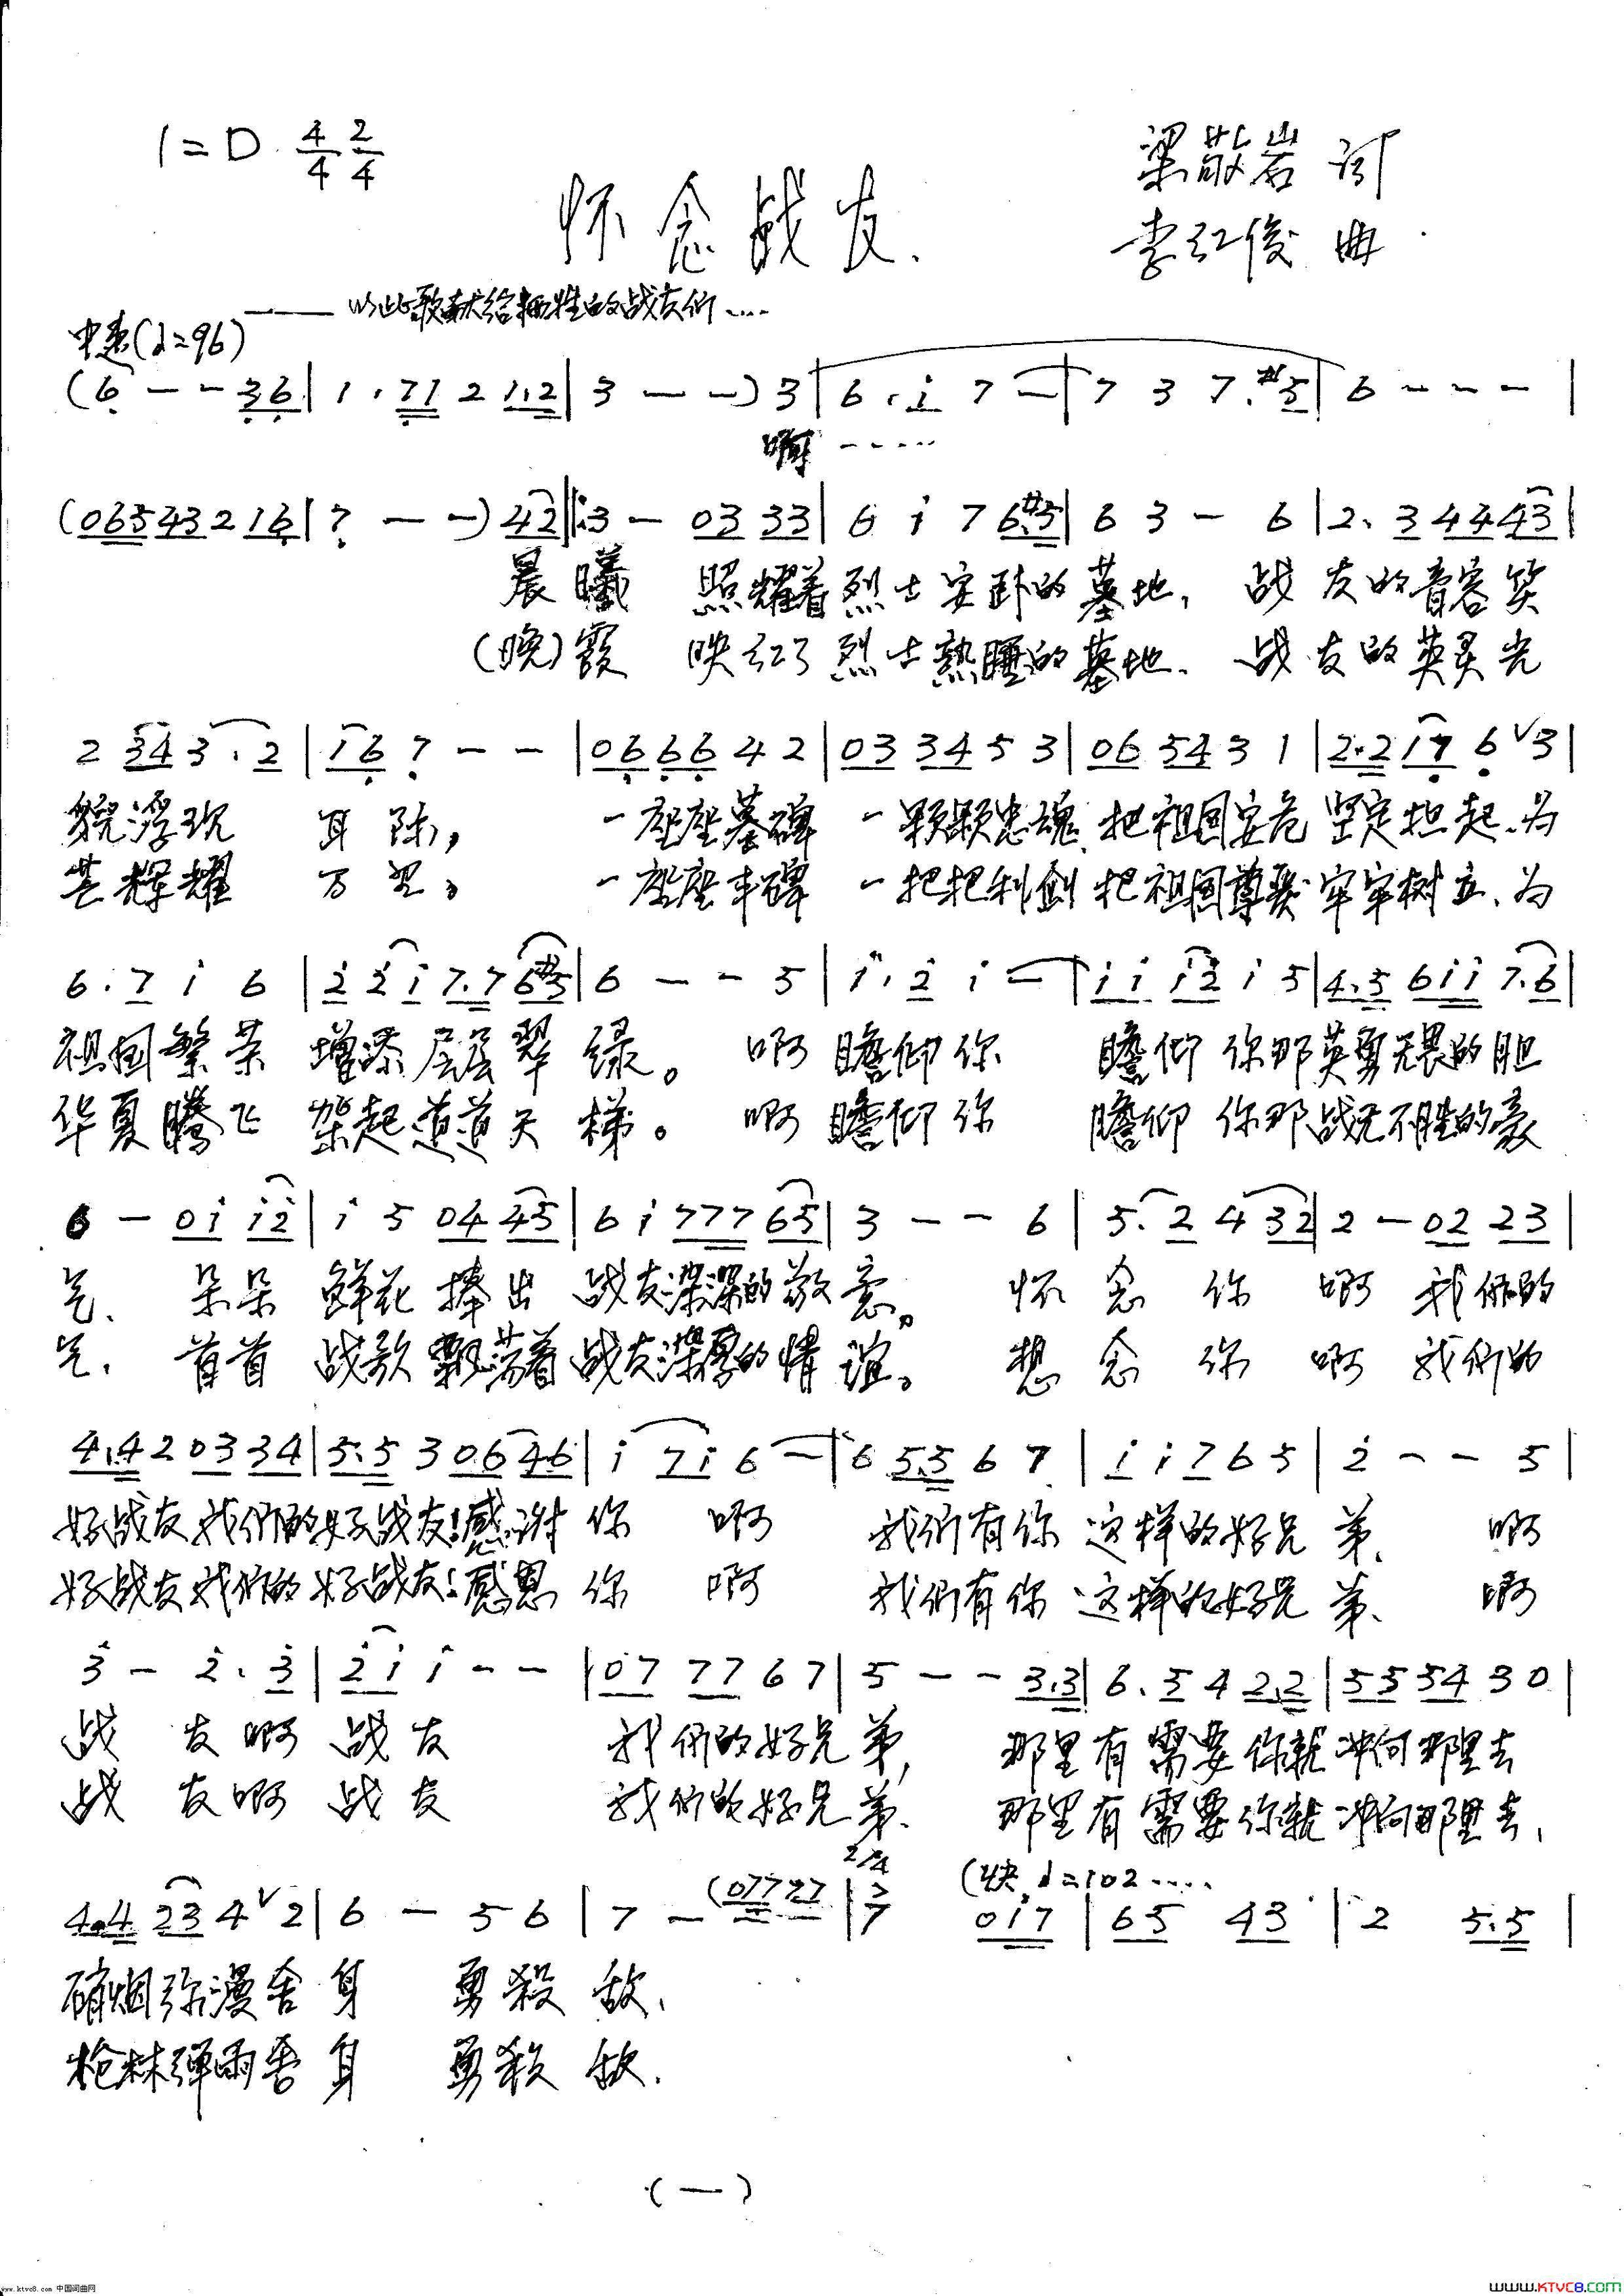 1=D 4/4 2/4
梁敬岩 词
怀念战友
李红俊 曲
——以此歌献给牺牲的战友们……
中速(♩=96)
(6 - - 3 6 | 1 . 7 1 2 1 . 2 | 3 - - ) 3 | 6 . i 7 - | 7 3 7 . #5 | 6 - - - |
啊 ……
(0 6 5 4 3 2 1 6 | 7 - - ) 4 2 ‖: 3 - 0 3 3 3 | 6 i 7 6 . #5 | 6 3 - 6 | 2 . 3 4 4 4 3 |
晨曦 照耀着烈士安卧的墓地, 战友的音容笑
(晚)霞 映红了烈士熟睡的墓地. 战友的英灵光
2 3 4 3 . 2 | 1 6 7 - - | 0 6 6 6 4 2 | 0 3 3 4 5 3 | 0 6 5 4 3 1 | 2 . 2 1 7 6 ∨ 3 |
貌浮现 耳际, 一座座墓碑 一颗颗忠魂, 把祖国安危 坚定担起、为
芒辉耀 万里, 一座座丰碑 一把把利剑 把祖国尊严 牢牢树立、为
6 . 7 i 6 | 2 2 i 7 . 7 6 #5 | 6 - - 5 | i . 2 i - | i i i 2 i 5 | 4 . 5 6 i i 7 . 6 |
祖国繁荣 增添层层翠绿。 啊 瞻仰你 瞻仰 你那英勇无畏的胆
华夏腾飞 架起道道天梯。 啊 瞻仰你 瞻仰 你那战无不胜的豪
6 - 0 i i 2 | i 5 0 4 4 5 | 6 i 7 7 7 6 5 | 3 - - 6 | 5 . 2 4 3 2 | 2 - 0 2 2 3 |
气、 朵朵 鲜花 捧出 战友深深的敬意。 怀念你 啊 我们的
气、 首首 战歌 飘荡着 战友深厚的情谊。 想念你 啊 我们的
4 . 4 2 0 3 3 4 | 5 . 5 3 0 6 4 6 | i 7 i 6 - | 6 5 . 5 6 7 | i i 7 6 5 | 2 - - 5 |
好战友我们的好战友!感谢你 啊 我们有你 这样的好兄弟、 啊
好战友我们的好战友!感恩你 啊 我们有你 这样的好兄弟、 啊
3 - 2 . 3 | 2 i i - - | 0 7 7 7 6 7 | 5 - - 3 . 3 | 6 . 5 4 2 . 2 | 5 5 5 4 3 0 |
战友啊 战友 我们的好兄弟, 那里有需要你就 冲向那里去
战友啊 战友 我们的好兄弟、 那里有需要你就 冲向那里去,
2/4 (快 ♩=102……
4 . 4 2 3 4 ∨ 2 | 6 - 5 6 | 7 - (0 7 7 7 7 | 7 0 i 7 | 6 5 4 3 | 2 5 . 5 |
硝烟弥漫舍身 勇殺敌、
枪林弹雨舍身 勇殺敌.
(一)
www.ktvc8.com 中国词曲网
WWW.KTVC8.COM